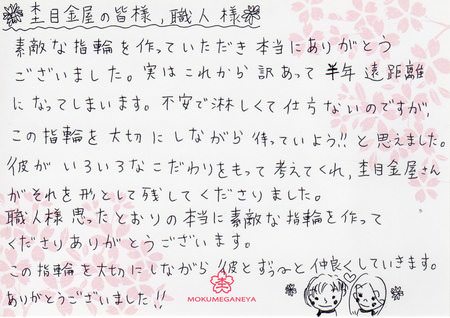 杢目金屋の皆様，職人様
素敵な指輪を作っていただき本当にありがとう
ございました。実はこれから訳あって半年遠距離
になってしまいます。不安で淋しくて仕方ないのですが，
この指輪を大切にしながら待っていよう!!と思えました。
彼がいろいろなこだわりをもって考えてくれ，杢目金屋さん
がそれを形として残してくださりました。
職人様思ったとおりの本当に素敵な指輪を作って
くださりありがとうございます。
この指輪を大切にしながら彼とずぅ〜っと仲良くしていきます。
ありがとうございました!!
杢
MOKUMEGANEYA